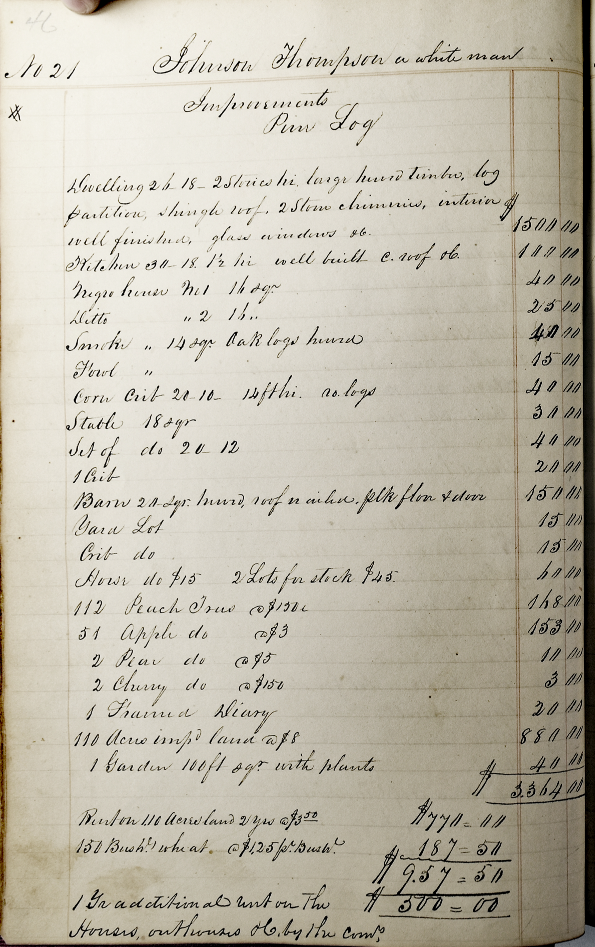 No 21 Johnson Thompson a white man
Improvements
Pine Log
Dwelling 26-18-2 Stories hi, large hewd timber, log
partition, shingle roof, 2 Stone chimnies, interior
well finished, glass windows &c. $ 1500 00
Kitchen 30-18 1½ hi well built c. roof &c. 100 00
Negro house No 1 16 sqr 40 00
Ditto " 2 16 " 25 00
Smoke " 14 sqr Oak logs hewd 40 00
Fowl " 15 00
Corn Crib 20-10- 14ft hi. ro. logs 40 00
Stable 18 sqr 30 00
Set of do 20-12 40 00
1 Crib 20 00
Barn 20 sqr. hewd, roof nailed. plk floor & door 150 00
Yard Lot 15 00
Crib do 15 00
Horse do $15 2 Lots for stock $45. 60 00
112 Peach Trees @ $150c 168 00
51 Apple do @ $3 153 00
2 Pear do @ $5 10 00
2 Cherry do @ $150 3 00
1 Framed 20 00
110 Acres impd land @ $8 880 00
1 Garden 100ft sqr with plants 40 00
$ 3.364 00
Rent on 110 Acres land 2 yrs @ $3 50 $770=00
150 Bushls wheat @ $1,25 pr. Bushl. 187=50
$ 9.57=50
1 Yr additional rent on the $ 500=00
Houses, outhouses &c, by the coms.